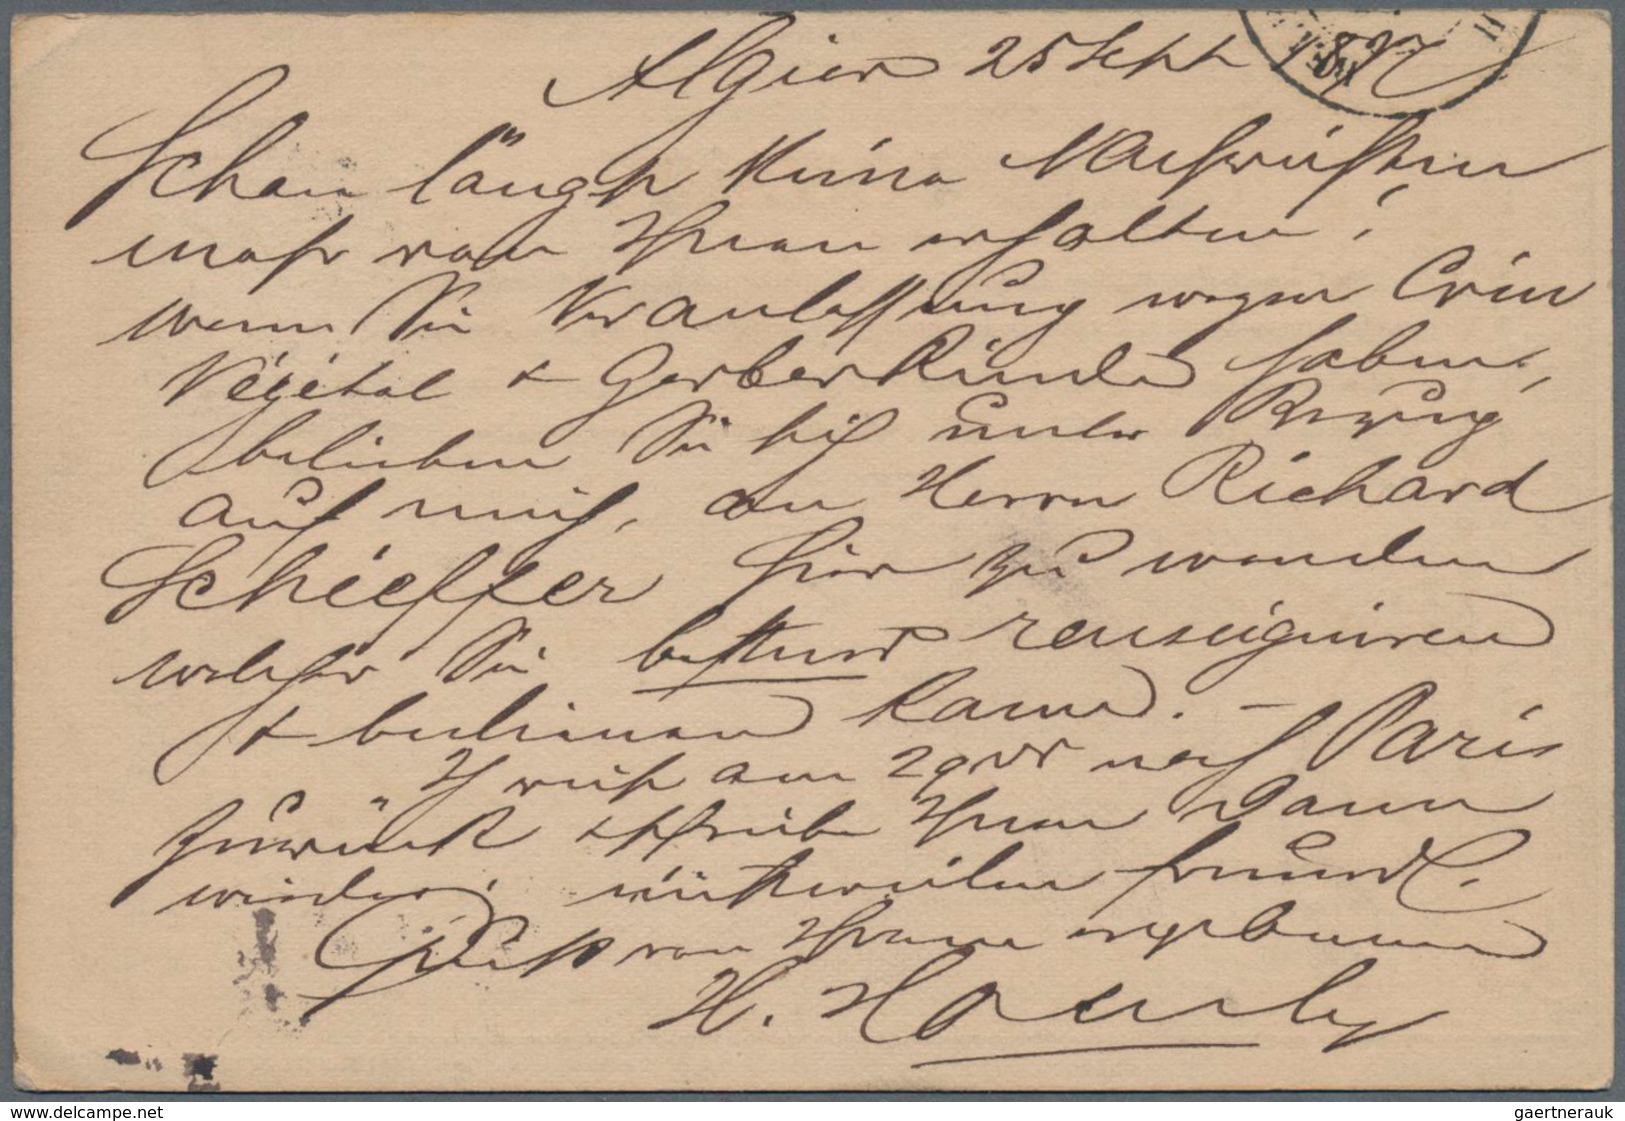 Algier 25 Sept 1897
Schon längst keine Nachrichten
mehr von Ihnen erhalten!
wenn Sie Veranlassung wegen Crin
Végétal & Gerberrinde haben,
belieben Sie sich unter Bezug
auf mich, an Herrn Richard
Schieffer hier zu wenden
welcher Sie bestens renseigniren
& bedienen kann. –
Ich reise am 29 nach Paris
zurück & schreibe Ihnen dann
wieder, freundl.
Gruss von Ihrem ergebenen
H.
www.delcampe.net
gaertnerauk